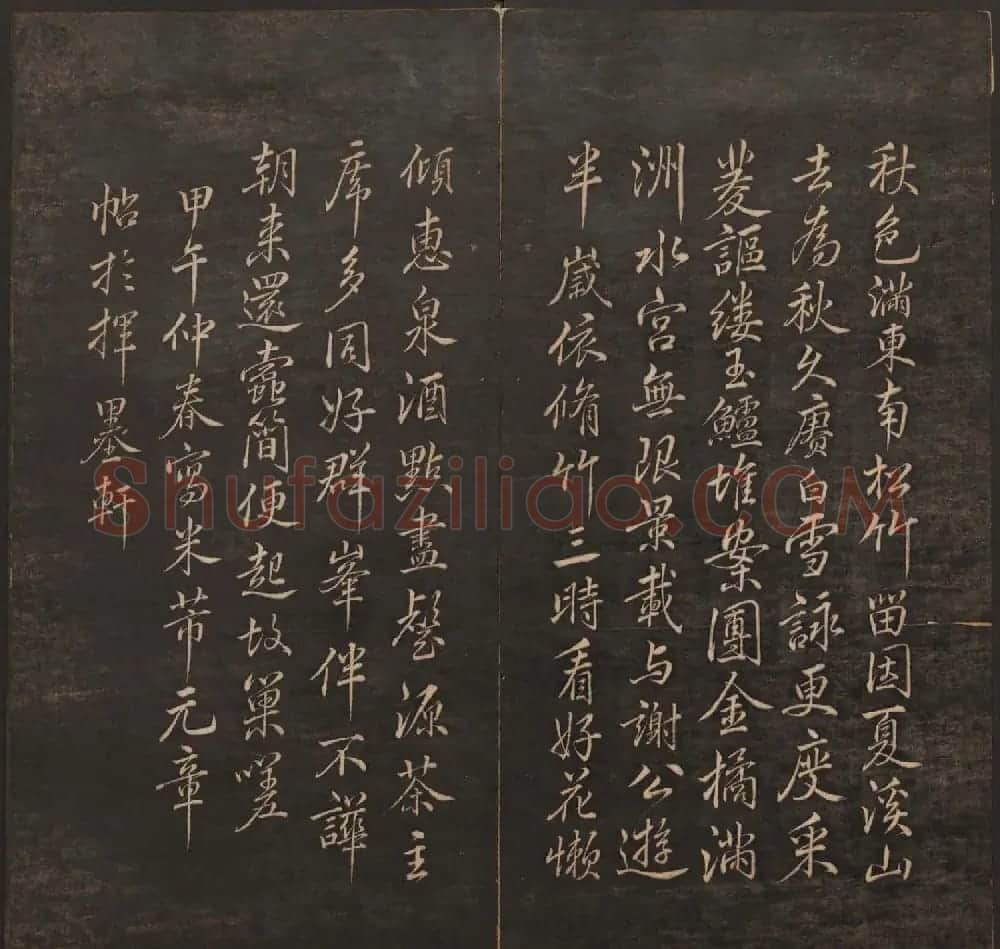 秋色滿東南松竹留因夏溪山
去為秋久賡白雪詠更度采
菱謳縷玉鱸堆案團金橘滿
洲水宮無限景載与謝公遊
半歲依脩竹三時看好花懶
傾惠泉酒點盡壑源茶主
席多同好群峯伴不譁
朝来還蠹簡便起故巢嗟
甲午仲春寫米芾元章
帖於揮墨軒
Shufaziliao.COM